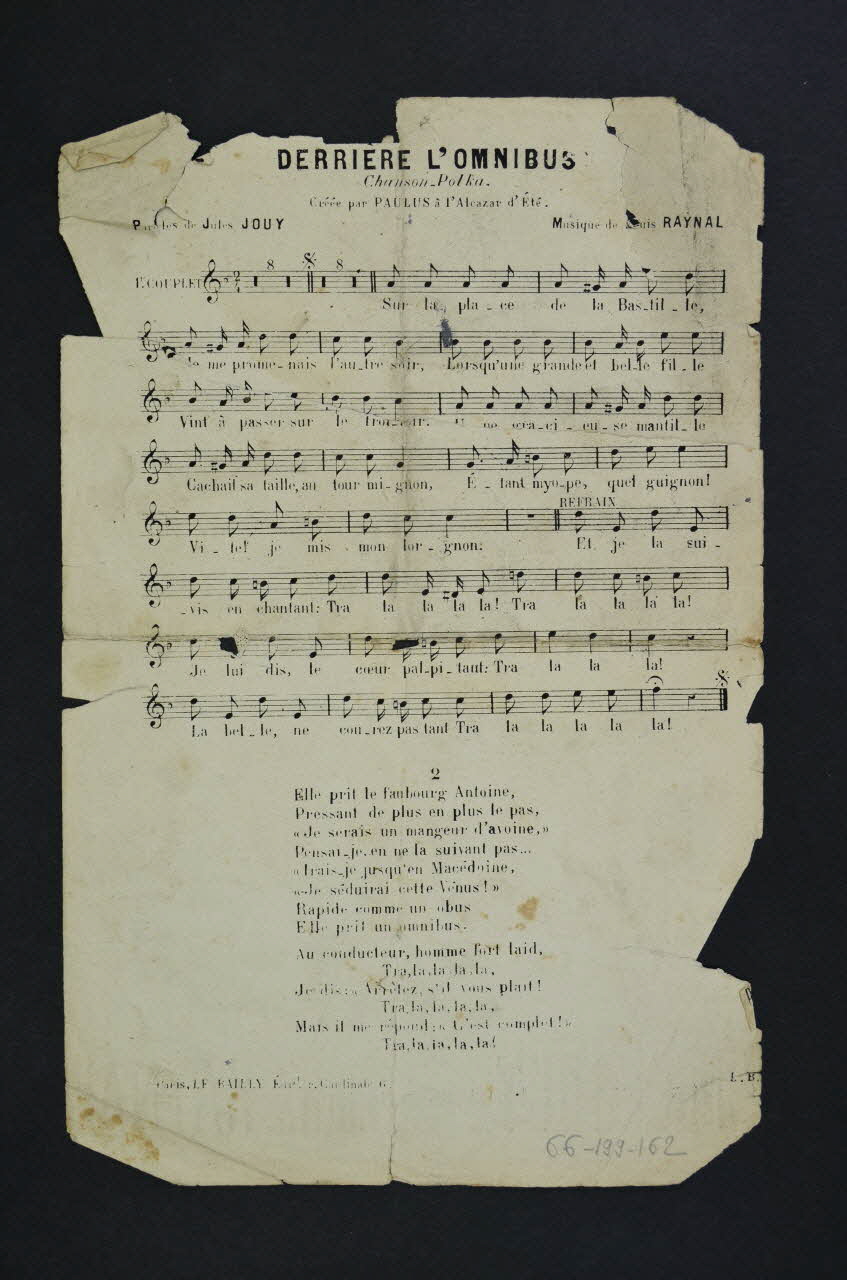 DERRIERE L'OMNIBUS
Chanson-Polka.
Créée par PAULUS à l'Alcazar d'Été.
Paroles de Jules JOUY
Musique de Louis RAYNAL
1r COUPLET
8 8
Sur la pla-ce de la Bas-til-le,
Je me prome-nais l'au-tre soir, Lorsqu'une grande et bel-le fil-le
Vint à passer sur le trottoir. U-ne gra-ci-eu-se mantil-le
Cachait sa taille, au tour mi-gnon, É-tant myo-pe, quel guignon!
REFRAIN
Vi-te! je mis mon lor-gnon: Et je la sui-
-vis en chantant: Tra la la la la! Tra la la la la!
Je lui dis, le cœur pal-pi-tant: Tra la la la!
La bel-le, ne cou-rez pas tant Tra la la la la la!
2
Elle prit le faubourg Antoine,
Pressant de plus en plus le pas,
«Je serais un mangeur d'avoine,»
Pensai-je, en ne la suivant pas...
«Irais-je jusqu'en Macédoine,
«Je séduirai cette Vénus!»
Rapide comme un obus
Elle prit un omnibus.
Au conducteur, homme fort laid,
Tra, la, la, la, la,
Je dis: «Arrêtez, s'il vous plait!
Tra, la, la, la, la,
Mais il me répond: «C'est complet!»
Tra, la, la, la, la!
Paris, LE BAILLY Édr r. Cardinale 6.
L. B.
66-199-162